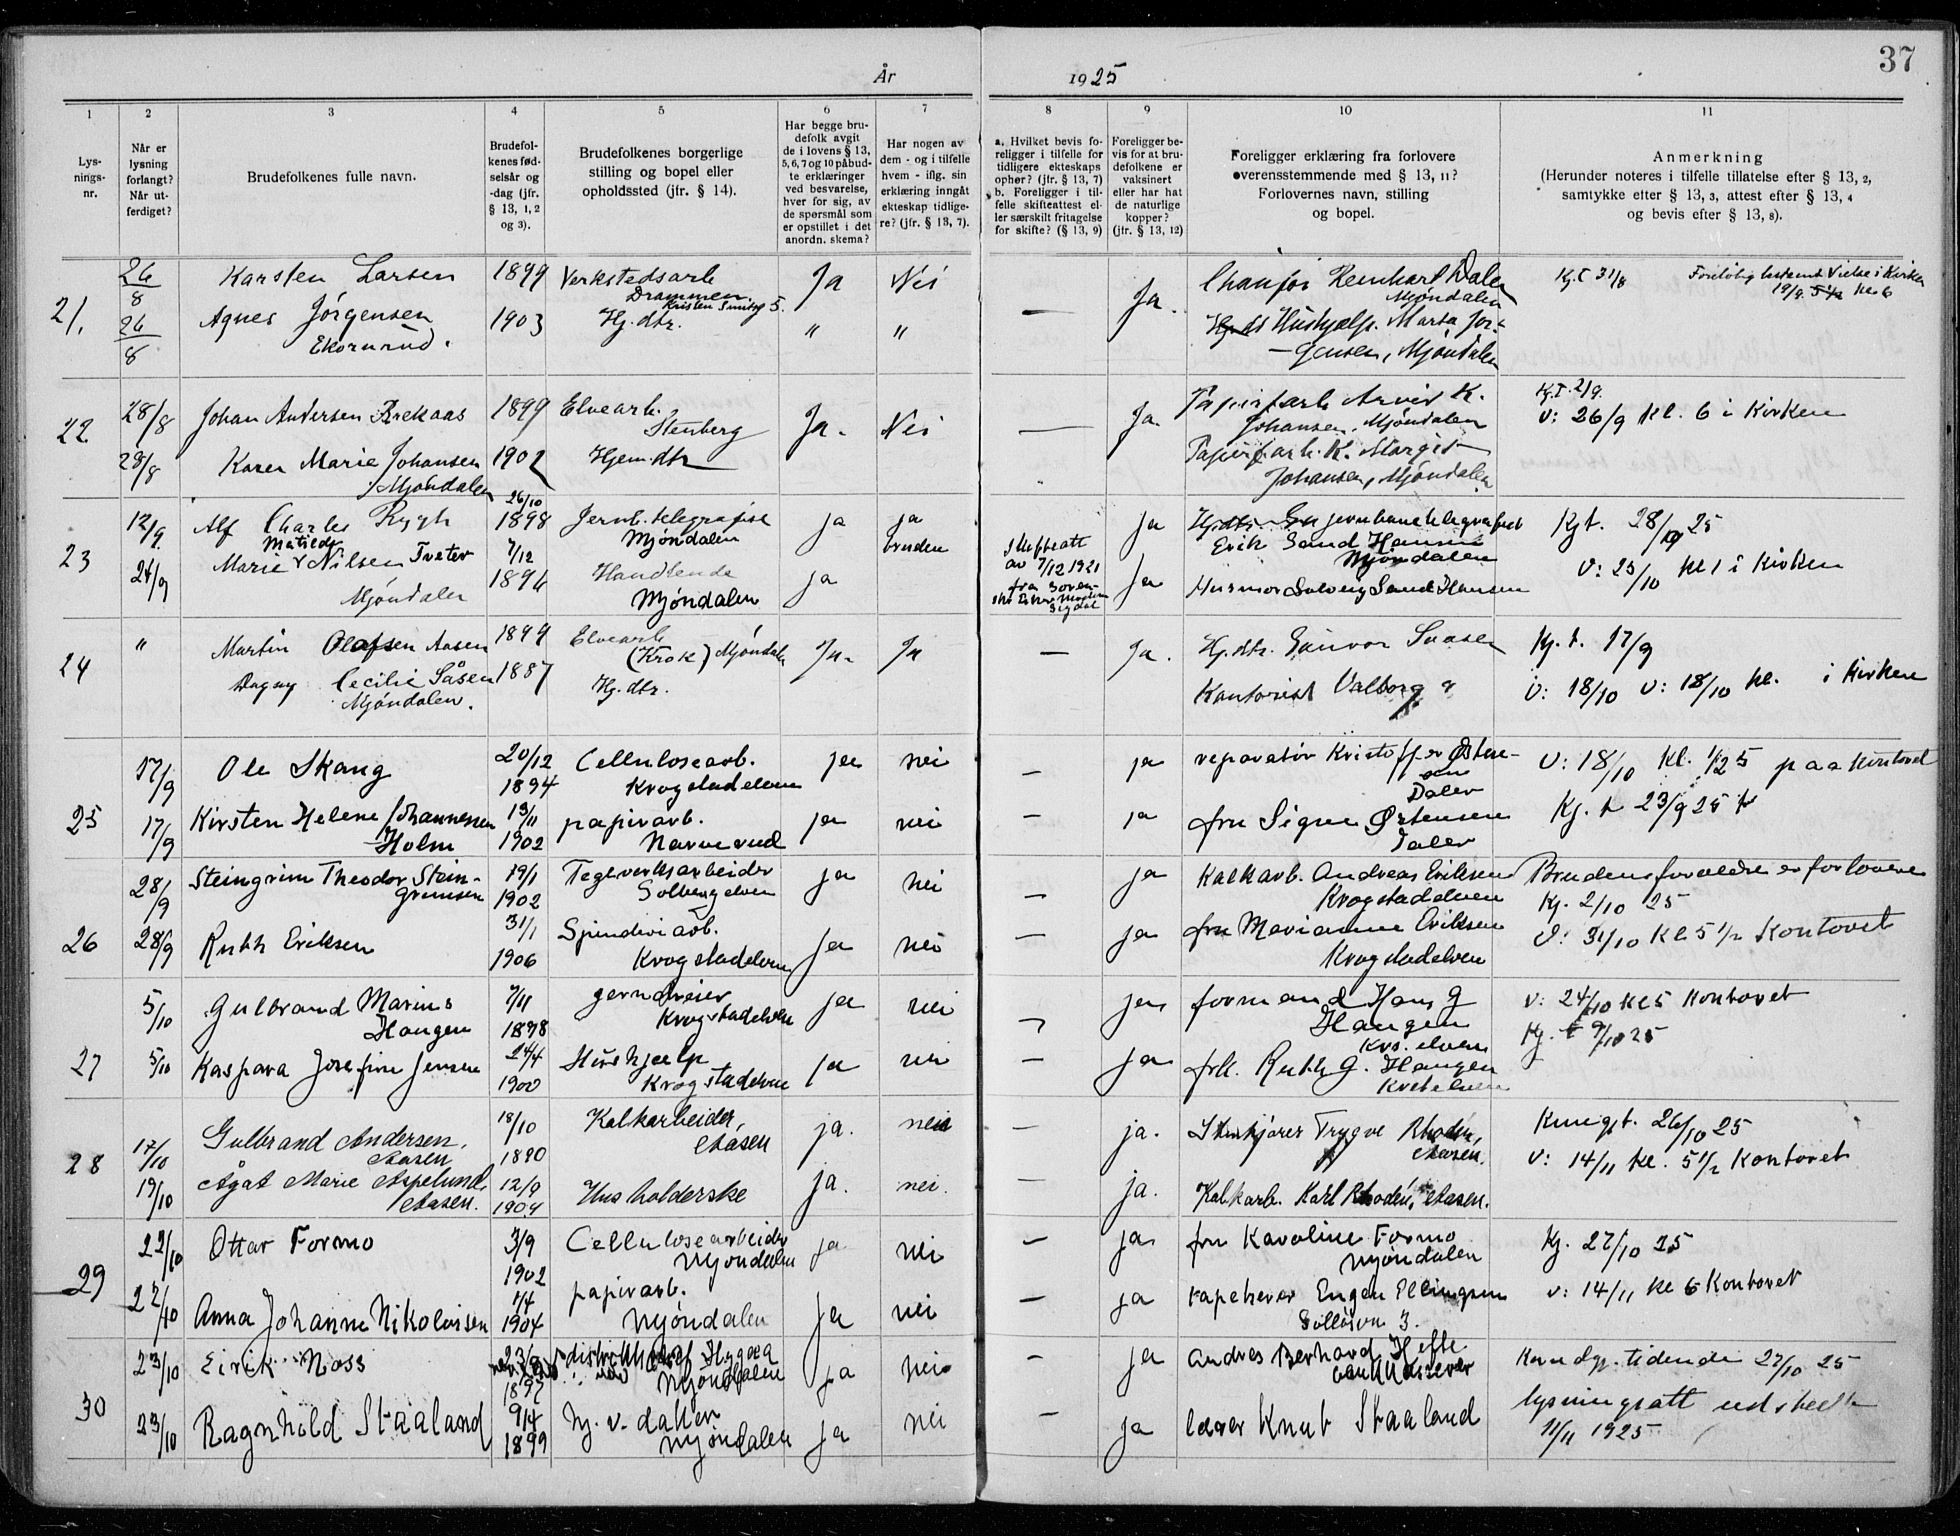 37
År 1925
1 2 3 4 5 6 7 8 9 10 11
Lys-
nings-
nr.
Når er
lysning
forlangt?
Når ut-
ferdiget?
Brudefolkenes fulle navn.
Brudefol-
kenes fød-
selsår og
-dag (jfr.
§ 13, 1, 2
og 3).
Brudefolkenes borgerlige
stilling og bopel eller
opholdssted (jfr. § 14).
Har begge bru-
defolk avgit
de i lovens § 13,
5, 6, 7 og 10 påbud-
te erklæringer
ved besvarelse,
hver for sig, av
de spørsmål som
er opstillet i det
anordn. skema?
Har nogen av
dem - og i tilfelle
hvem - iflg. sin
erklæring inngått
ekteskap tidlige-
re? (jfr. § 13, 7).
a. Hvilket bevis fo-
religger i tilfelle for
tidligere ekteskaps
ophør? (jfr. § 13, 7)
b. Foreligger i til-
felle skifteattest el-
ler særskilt fritagelse
for skifte? (§ 13, 9)
Foreligger be-
vis for at bru-
defolkene er
vaksinert
eller har hat
de naturlige
kopper?
(jfr. § 13, 12)
Foreligger erklæring fra forlovere
overensstemmende med § 13, 11?
Forlovernes navn, stilling
og bopel.
Anmerkning
(Herunder noteres i tilfelle tillatelse efter § 13, 2,
samtykke efter § 13, 3, attest efter § 13, 4
og bevis efter § 13, 8).
21.
26/8 Karsten Larsen 1899 Verkstedsarb. Drammen Ja Nei
26/8 Agnes Jørgensen 1903 Hj.dtr. " "
Ekornrud.
— Ja.
Reinhart Dalen
Mjøndalen
Hushjælp. Marta Jør-
gensen, Mjøndalen
Kg.T 31/8 Vielse i Kirken
19/9 kl 6
22
28/8 Johan Andersen Brekaas 1899 Elvearb. Stenberg Ja. Nei
28/8 Karen Marie Johansen 1902 Hjem.dtr
Mjøndalen
— Ja.
Papirfarb. Arvid K.
Johansen, Mjøndalen
Papirfarb. K. Margit
Johansen, Mjøndalen
Kg.T. 2/9.
V: 26/9 kl. 6 i Kirken
23
12/9 Alf Charles Rygh 26/10 1898 Jernb. telegrafist Mjøndalen ja ja
bruden
24/9 Marie Matilde Nilsen Tveter 7/12 1896 Handlende Mjøndalen ja
Mjøndalen
Skifteatt
av 7/12 1921
fra
Sigdal
ja
ja
jernbanetelegrafist
Erik Sand Hansen
Mjøndalen
Husmor Solveig Sand Hansen
Kgt. 28/9 25
V: 25/10 kl 1 i Kirken
24
" Martin Olafsen Aasen 1899 Elvearb. (Krok) Mjøndalen Ja. Ja
Dagny Cecilie Såsen 1887 Hj.dtr.
Mjøndalen.
— Ja.
Hj.dtr. Gunvor Saasen
Kontorist Valborg
Kg.t. 17/9
V: 18/10 V: 18/10 kl. i Kirken
25
17/9 Ole Skang 20/12 1894 Cellulosearb. Krogstadelven ja nei
17/9 Kirsten Helene Johannessen 13/11 1902 papirarb. Narverud ja nei
Holm
— ja
— ja
reparatør Kristoffer Østen-
sen
Daler
fru Signe Østensen
Daler
V: 18/10 Kl. 1/2 5 paa Kontoret
Kg. t 23/9 25
26
28/9 Steingrim Theodor Stein- 19/1 1902 Tegeverksarbeider Solbergelven ja nei
grimsen
28/9 Ruth Eriksen 31/1 1906 Spinderiarb. Krogstadelven ja nei
— ja
— ja
Kalkarb. Andreas Eriksen
Krogstadelven
fru Marianne Eriksen
Krogstadelven
Brudens forældre er forlovere
Kg. 2/10 25
V: 31/10 Kl 5 1/2 Kontoret
27
5/10 Gulbrand Marius 7/11 1898 jerndreier Krogstadelven ja nei
Haugen
5/10 Kaspara Josefine Jensen 24/4 1900 Hushjelp Krogstadelven ja nei
— ja
— ja
formand Hans G
Haugen
Kro. elven
frk. Ruth G. Haugen
V: 24/10 kl 5 Kontoret
Kg. t 9/10 25
28
17/10 Gulbrand Andersen, 18/10 1890 Kalkarbeider, Aasen ja. nei
Aasen
19/10 Ågot Marie Aspelund, 12/9 1904 Husholderske ja. nei.
Aasen.
ja.
— ja.
Trygve Rhodén,
Aasen.
Kalkarb. Karl Rhodén, Aasen.
Kungt. 26/10 25
V: 14/11 kl. 5 1/2 Kontoret
29
22/10 Ottar Formo 3/9 1902 Cellulosearbeider Mjøndalen ja nei
22/10 Anna Johanne Nikolaisen 1/4 1904 papirarb. Mjøndalen ja nei
— ja
— ja
fru Karoline Formo
Mjøndalen
tapetserer Eugen Ellingsen
3.
Kg. 27/10 25
V: 14/11 kl 6 Kontoret
30
23/10 Eirik Moss 1897 Hygea Mjøndalen ja nei
23/10 Ragnhild Staaland 9/4 1899 hj. v. datter Mjøndalen ja nei
— ja
— ja
Andres Berhard Hefte
lærer Knut Staaland
Kundgj. tidende 27/10 25
lysningsatt utstedt
11/11 1925